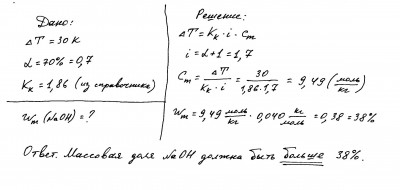 Дано:
ΔT = 30 К
α = 70% = 0,7
Kк = 1,86 (из справочника)
Wm (NaOH) = ?
Решение:
ΔT = Kк · i · Cm
i = α + 1 = 1,7
Cm = ΔT / Kк · i = 30 / 1,86 · 1,7 = 9,49 (моль/кг)
Wm = 9,49 моль/кг · 0,040 кг/моль = 0,38 = 38%
Ответ. Массовая доля NaOH должна быть больше 38%.